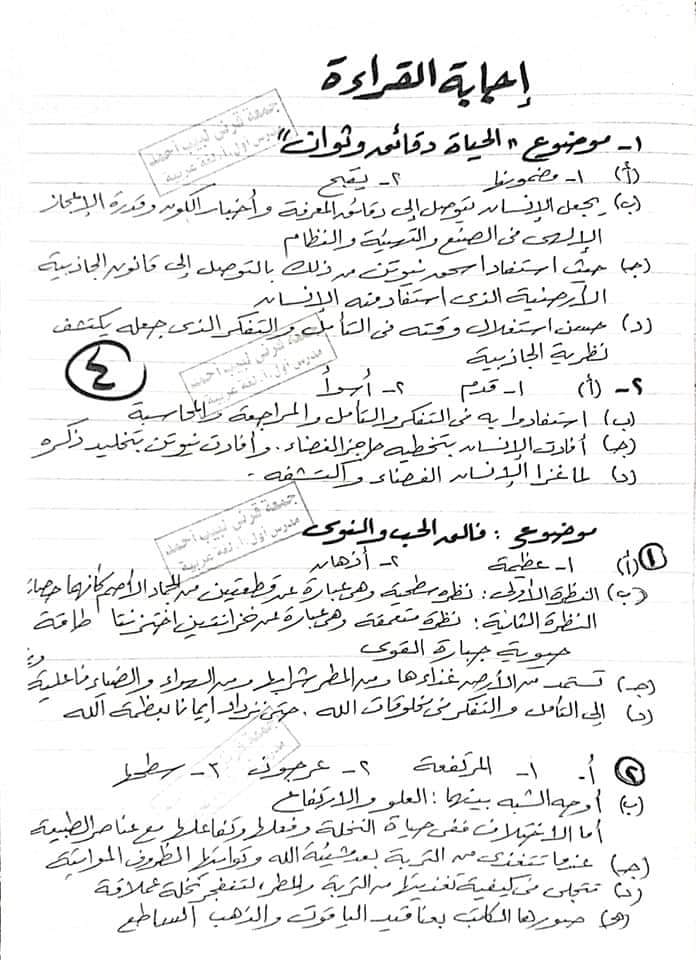 إجابة القراءة
١- موضوع "الحياة دقائق وثوان"
(أ) ١- مضمونها ٢- يقبح
(ب) يجعل الإنسان يتوصل إلى دقائق المعرفة وأخبار الكون وقدرة الإعجاز
الإلهى فى الصنع والتهيئة والنظام
(جـ) حيث استفاد اسحق نيوتن من ذلك بالتوصل إلى قانون الجاذبية
الأرضية الذى استفاد منه الإنسان
(د) حسن استغلال وقته فى التأمل والتفكر الذى جعله يكتشف
نظرية الجاذبية
٤
٢- (أ) ١- قدم ٢- أسوأ
(ب) استفادوا به فى التفكر والتأمل والمراجعة والمحاسبة
(جـ) أفادت الإنسان بتخطيه حاجز الفضاء. وأفادت نيوتن بتخليد ذكره
(د) لما غزا الإنسان الفضاء واكتشفه -
موضوع : فالق الحب والنوى
١ (أ) ١- عظيمة ٢- أذهان
(ب) النظرة الأولى: نظرة سطحية وهى عبارة عن قطعتين من الجماد الأصم كأنهما
النظرة الثانية: نظرة متعمقة وهى عبارة عن خزانتين اختزنتا طاقة
حيوية جبارة القوى
(جـ) تستمد من الأرض غذاءها ومن المطر شرابها ومن الهواء والضياء فاعلية
(د) إلى التأمل والتفكر فى مخلوقات الله. حتى نزداد إيمانا بعظمة الله
٢ أ. ١- المرتفعة ٢- عرجون ٣- سطحها
(ب) أوجه الشبه بينهما: العلو والارتفاع
أما الاختلاف ففى حياة النخلة وفعلها وتفاعلها مع عناصر الطبيعة
(جـ) عندما تتغذى من التربة بعد مشيئة الله وتواتيها الظروف المواتية
(د) تتجلى فى كيفية تغذيتها من التربة والمطر، لتنفجر نخلة عملاقة
(هـ) صورها الكاتب بعناقيد الياقوت والذهب الساطع
جمعة قرنى لبيب احمد
مدرس أول أ. لغة عربية
جمعة قرنى لبيب احمد
مدرس أول أ. لغة عربية
جمعة قرنى لبيب احمد
مدرس أول أ. لغة عربية